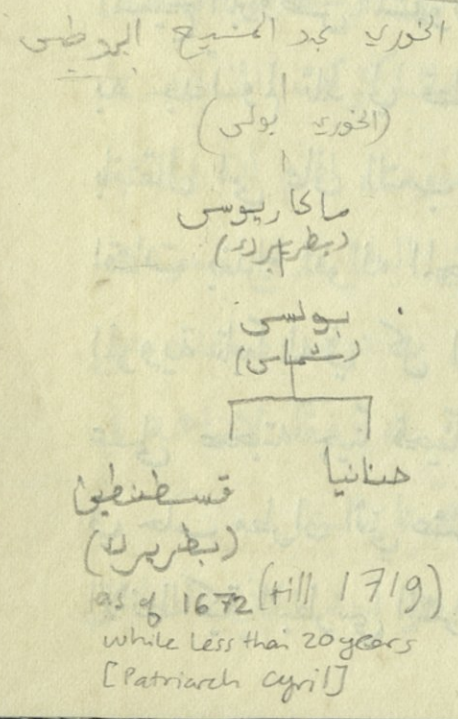 الخوري عبد المسيح البروطس
(الخوري بولس)
ماكاريوس
(بطريرك)
بولس
(شماس)
حنانيا
قسطنطين
(بطريرك)
as of 1672 (till 1719)
while less than 20 years
[Patriarch Cyril]